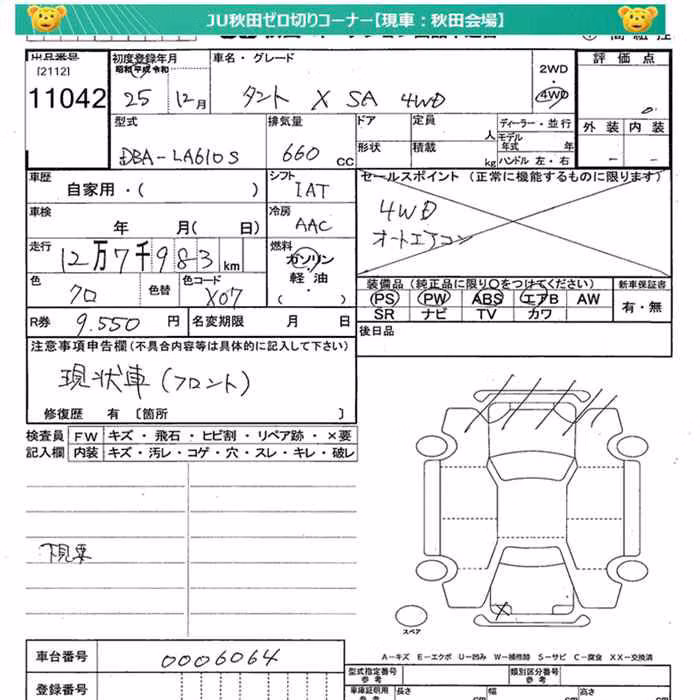 JU秋田ゼロ切りコーナー【現車:秋田会場】
出品番号
[2112]
11042
初度登録年月
昭和 平成 令和
25 12月
車名・グレード
タント X SA 4WD
2WD
・
4WD
評価点
0.
外装 内装
－ －
型式
DBA-LA610S
排気量
660 CC
ドア
形状
定員
人
積載
kg
ディーラー・並行
モデル
年式 年
ハンドル 左・右
車歴
自家用・( )
シフト
IAT
車検
年 月( 日)
冷房
AAC
走行
12万7千983 km
燃料
ガソリン
軽油
( )
色
クロ
色替
色コード
X07
R券
9.550 円
名変期限 月 日
セールスポイント(正常に機能するものに限ります)
4WD
オートエアコン
装備品(純正品に限り○をつけてください)
PS PW ABS エアB AW
SR ナビ TV カワ
新車保証書
有・無
後日品
注意事項申告欄(不具合内容等は具体的に記入して下さい)
現状車(フロント)
修復歴 有 〔箇所 〕
検査員
記入欄
FW キズ・飛石・ヒビ割・リペア跡・×要
内装 キズ・汚レ・コゲ・穴・スレ・キレ・破レ
下見来
X
スペア
A－キズ E－エクボ U－凹み W－補修跡 S－サビ C－腐食 XX－交換済
車台番号
0006064
登録番号
型式指定番号
参考
類別区分番号
参考
車庫証明用
参考
長さ
cm
幅
cm
高さ
cm